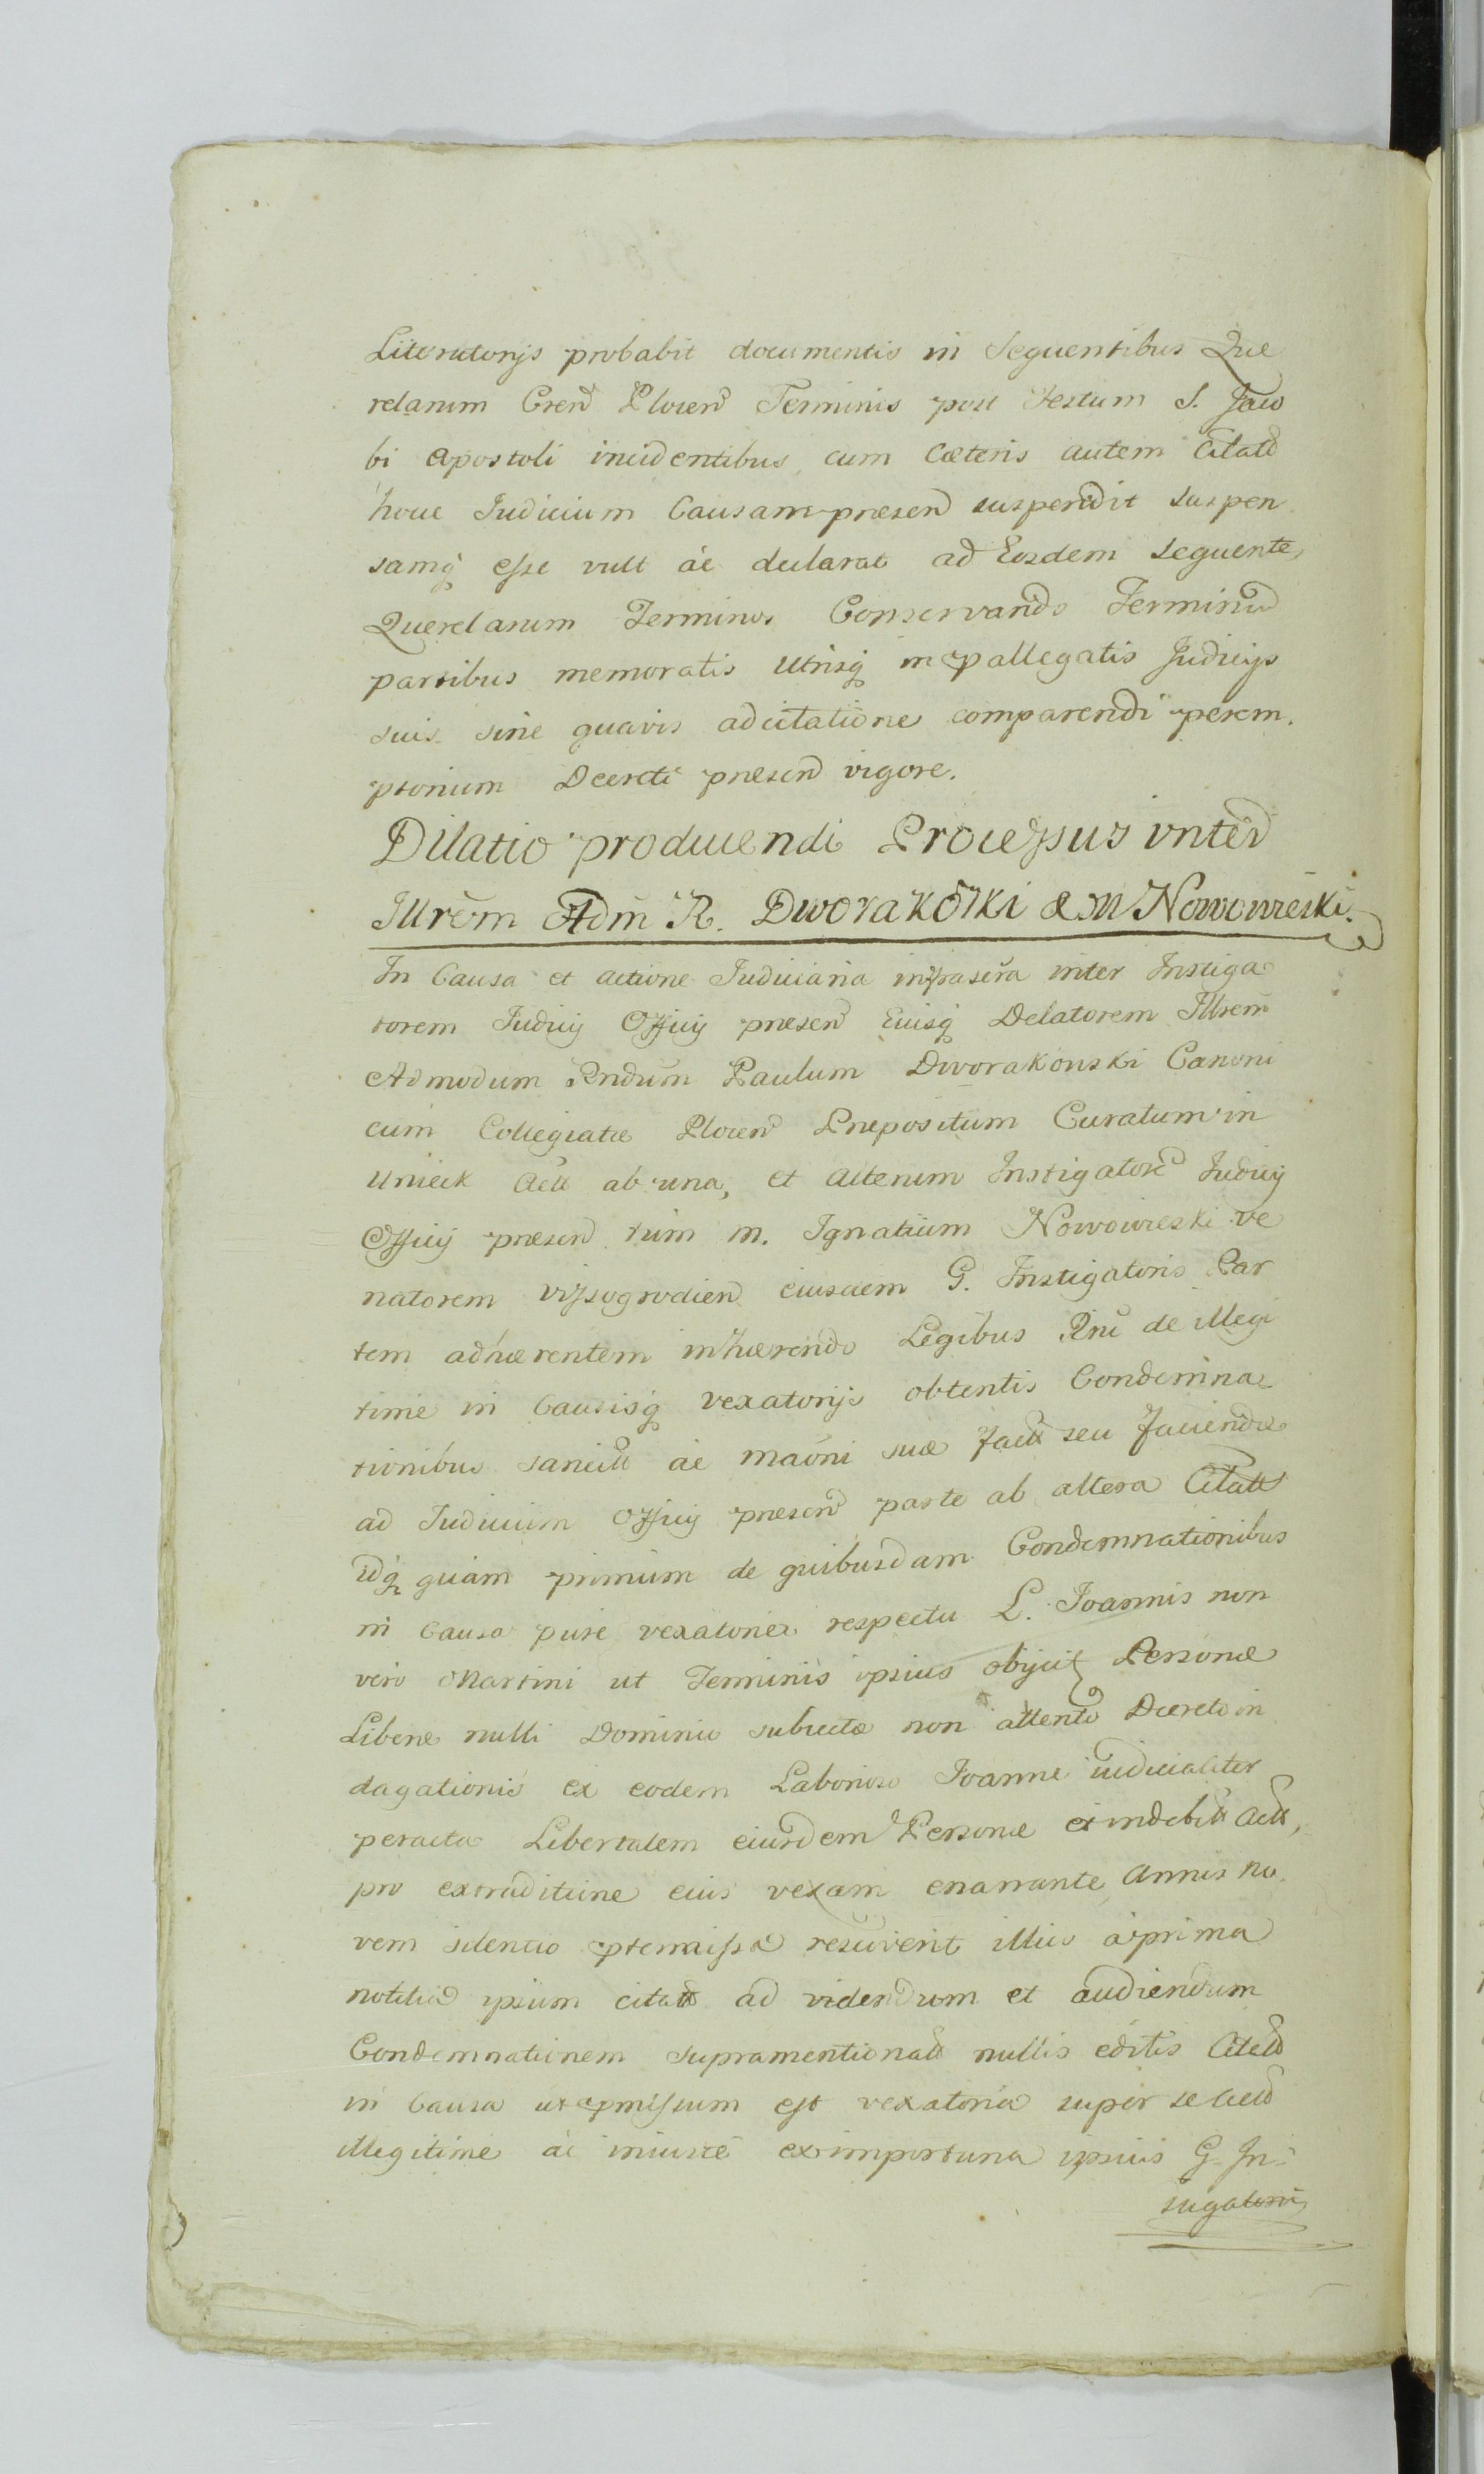 Literatorijs probabit documentis in Sequentibus Que
relarum Cren Plocen Terminis post Festum S. Jaco
bi Apostoli incidentibus, cum Cæteris autem Citatt
hocce Iudicium Causam præsen suspendit suspen
samq esse vult ac declarat ad Eosdem sequente,
Querelarum Terminos Conservando Terminũ
partibus memoratis Utrisq in ppallegatis Judicijs
suis sine quavis adcitatione comparendi perem.
ptorium Decreti præsen vigore.
Dilatio producendi Processus inter
Illrem Adm R. Dworakoski & M Nowowieski.
In Causa et actione Iudiciaria infrascra inter Instiga
torem Iudicij Officij præsen Eiusq Delatorem Illrem
Admodum Rndum Paulum Dworakouski Canoni
cum Collegiatæ Plocen Præpositum Curatum in
Unieck Actt ab una, et alterum Instigatorẽ Iudicij
Officij præsen tum M. Ignatium Nowowieski Ve
natorem vyssogrodien eiusdem G. Instigatoris Par
tem adhærentem inhærendo Legibus Rni de illegi
time in Causisq vexatorijs obtentis Condemna
tionibus sancitt ac maõni suæ factt seu faciendæ
ad Iudicium Officij præsen parte ab altera Citatt
idq quam primum de quibusdam Condemnationibus
in Causa pure vexatoria respectu L. Joannis non
vero Martini ut Terminis ipsius obijcit Personæ
Liberæ nulli Dominio subiectæ non attento Decreto in
dagationis ex eodem Laborioso Joanne iudicialiter
peracta Libertatem eiusdem Personæ et indebitt Actt,
pro extraditione eius vexam enarrante, Annis no
vem silentio ptermissa resciverit illico a prima
notitia ipsum citatt ad videndum et audiendum
Condemnationem supramentionatt nullis editis Citatt
in Causa ut pmissum est vexatoria super se
illegitime ac iniuste ex importuna ipsius G. In-
stigatoris